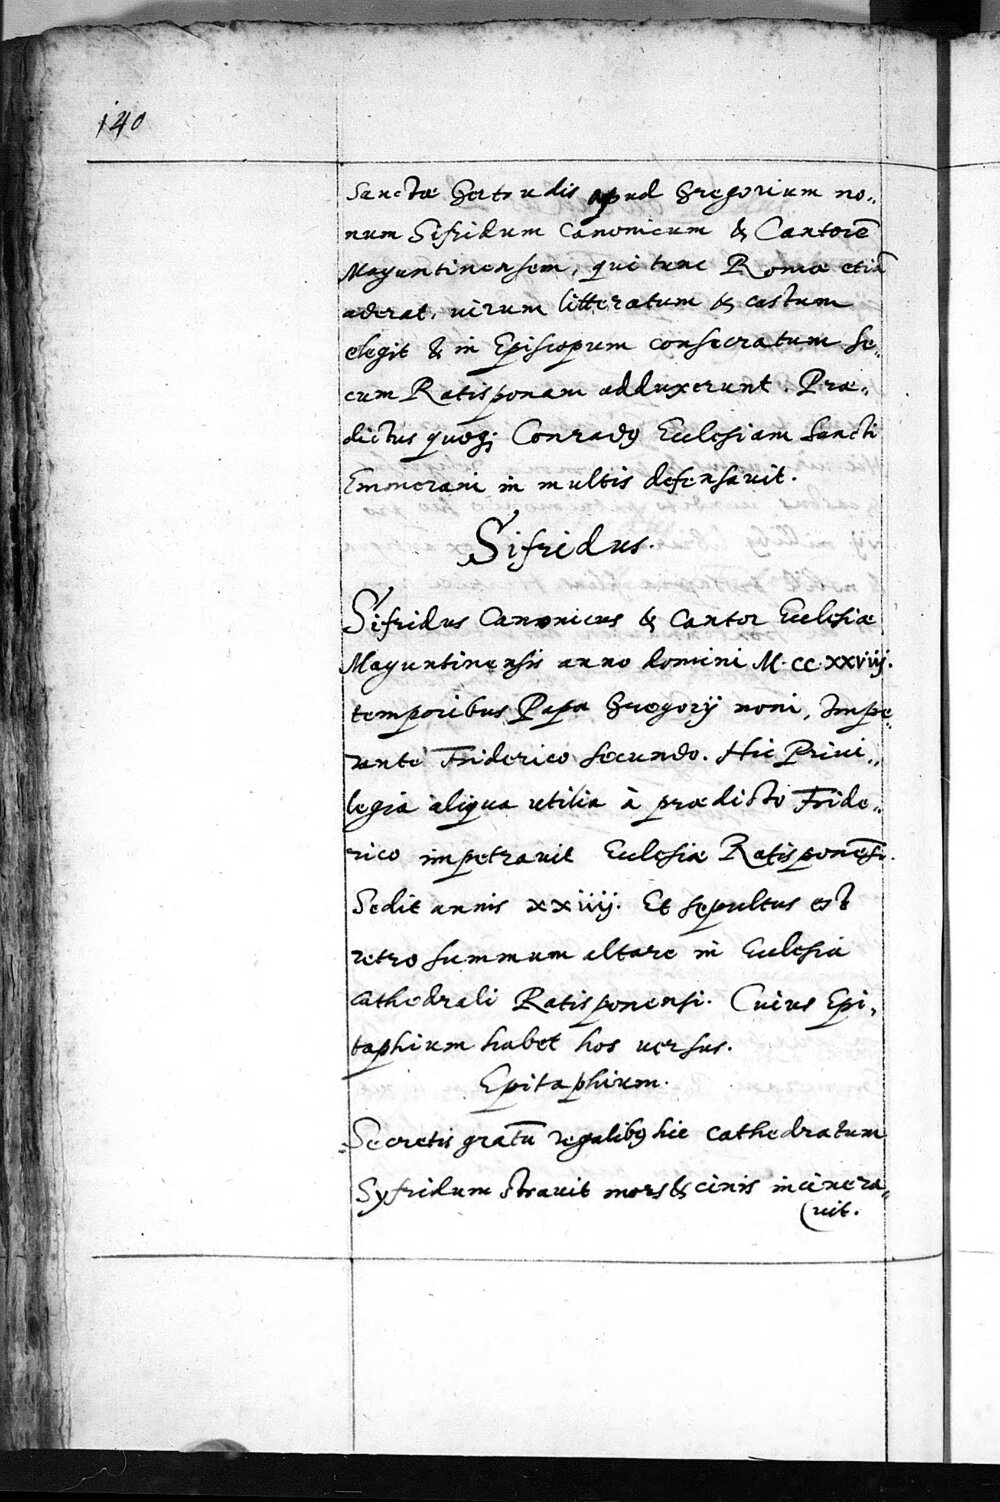 140
Sanctæ Gertrudis apud Gregorium no„
num Sifridum Canonicum & Cantorē
Maguntinensem, qui tunc Romæ etiā
aderat, uirum litteratum & castum
elegit & in Episcopum consecratum se„
cum Ratisponam adduxerunt. Præ„
dictus quoq; Conradꝰ Ecclesiam Sancti
Emmerani in multis defensauit.
Sifridus.
Sifridus Canonicus & Cantor Ecclesiæ
Maguntinensis anno domini M.CC.XXVIIIJ.
temporibus Papa Gregorij noni, Impe„
rante Friderico secundo. Hic Priui„
legia aliqua utilia à prædicto Fride„
rico impetrauit Ecclesiæ Ratisponēsi.
Sedit annis xxiiij. Et sepultus est
retro summum altare in Ecclesia
cathedrali Ratisponensi. Cuius Epi„
taphium habet hos uersus.
Epitaphium.
Secretis gratū regalibꝰ hic cathedratum
Syfridum strauit mors & cinis incinera„
(uit.